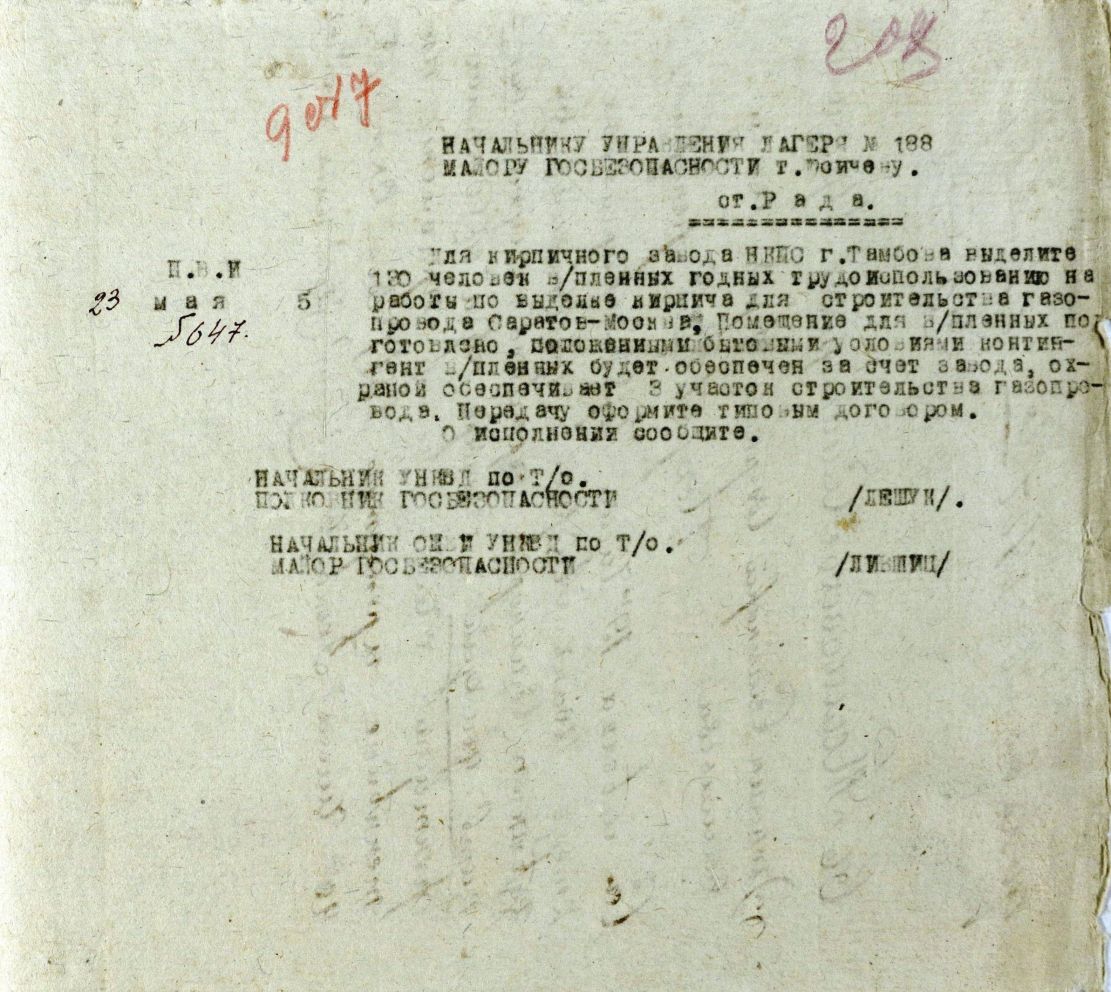 208
НАЧАЛЬНИКУ УПРАВЛЕНИЯ ЛАГЕРЯ № 188
МАЙОРУ ГОСБЕЗОПАСНОСТИ т.
ст.Р а д а.
================
П.В.И
23 м а я 5
5647.
Для кирпичного завода НКПС г.Тамбова выделите
человек в/пленных годных трудоиспользованию на
работы по выделке кирпича для строительства газо-
провода Саратов-Москва, Помещение для в/пленных по
готовлено, положенными бытовыми условиями контин-
гент в/пленных будет обеспечен за счет завода, ох-
раной обеспечивает 3 участок строительства газопро-
вода. Передачу оформите типовым договором.
О исполнении сообщите.
НАЧАЛЬНИК УНКВД по Т/о.
ПОЛКОВНИК ГОСБЕЗОПАСНОСТИ /ЛЕЩУК/.
НАЧАЛЬНИК УНКВД по Т/о.
МАЙОР ГОСБЕЗОПАСНОСТИ /ЛИВШИЦ/